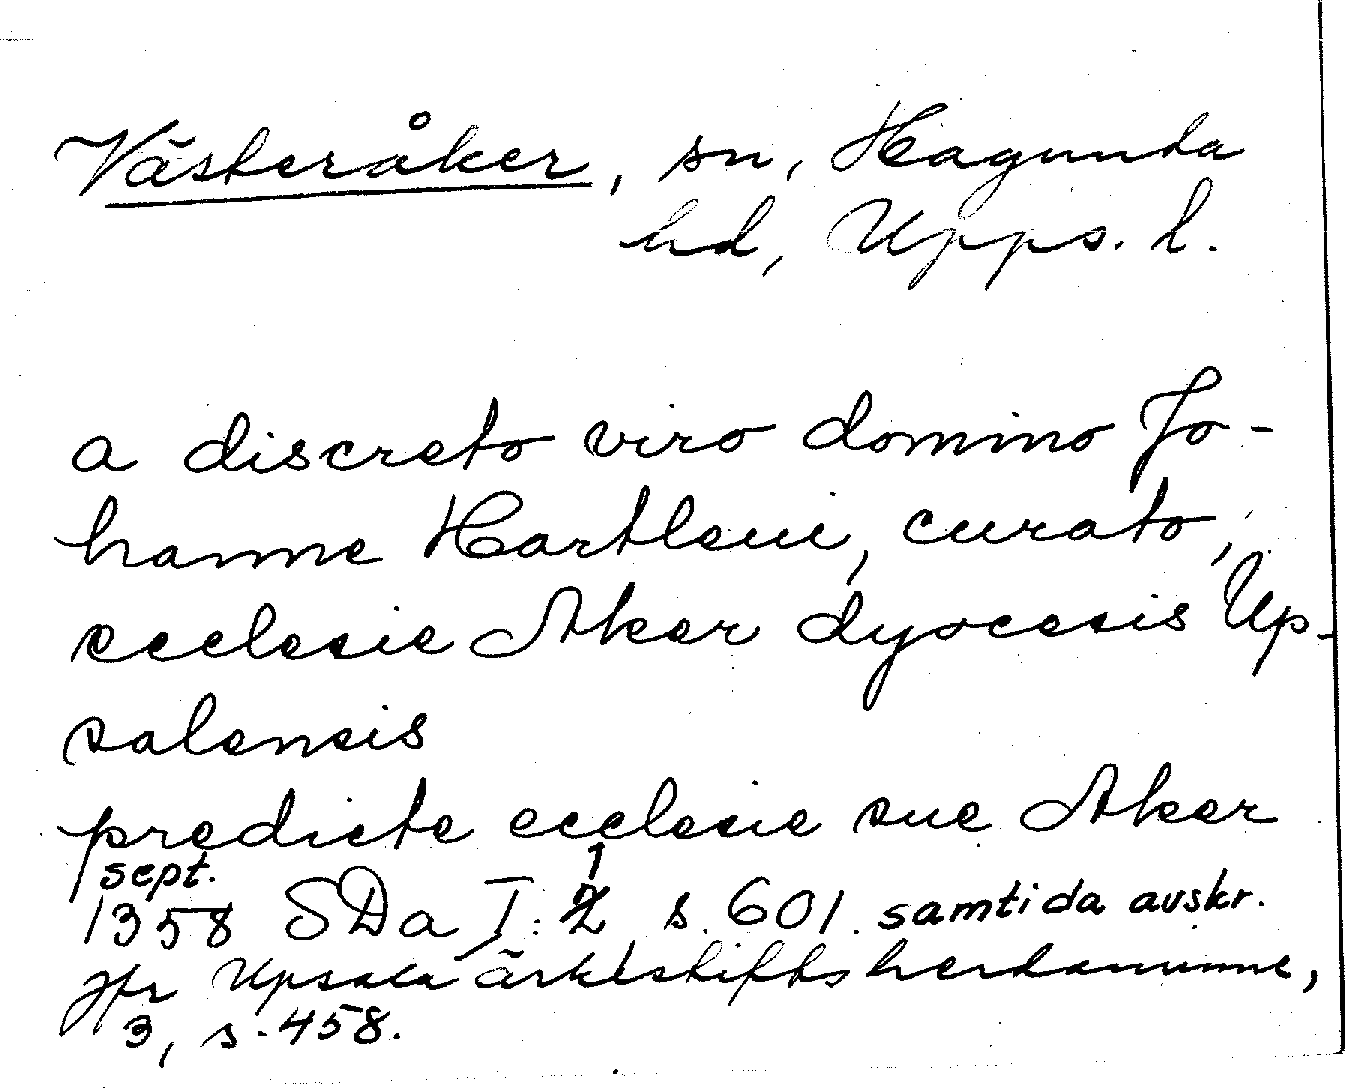 Västeråker, sn, Hagunda
hd, Upps. l.
a discreto viro domino Jo-
hanne Hartleui, curato,
ecclesie Aker dyocesis Up-
salensis
predicte ecclesie sue Aker
sept.
1358 SDa I: 1 s. 601. samtida avskr.
Jfr Upsala ärkestifts herdaminne,
3, s. 458.